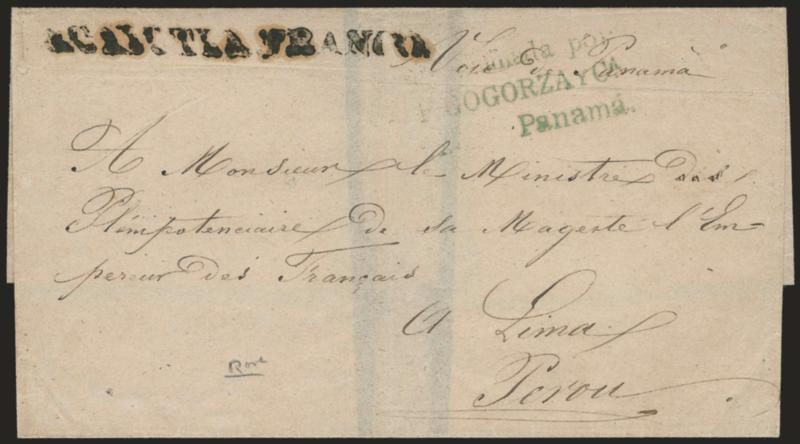 ACAJUTLA FRANCA
Voie de Panamá
nada por
GOGORZA Y CA
Panamá.
A Monsieur le Ministre
Plénipotenciaire de sa Magesté l'Em=
pereur des Français
a Lima
Perou